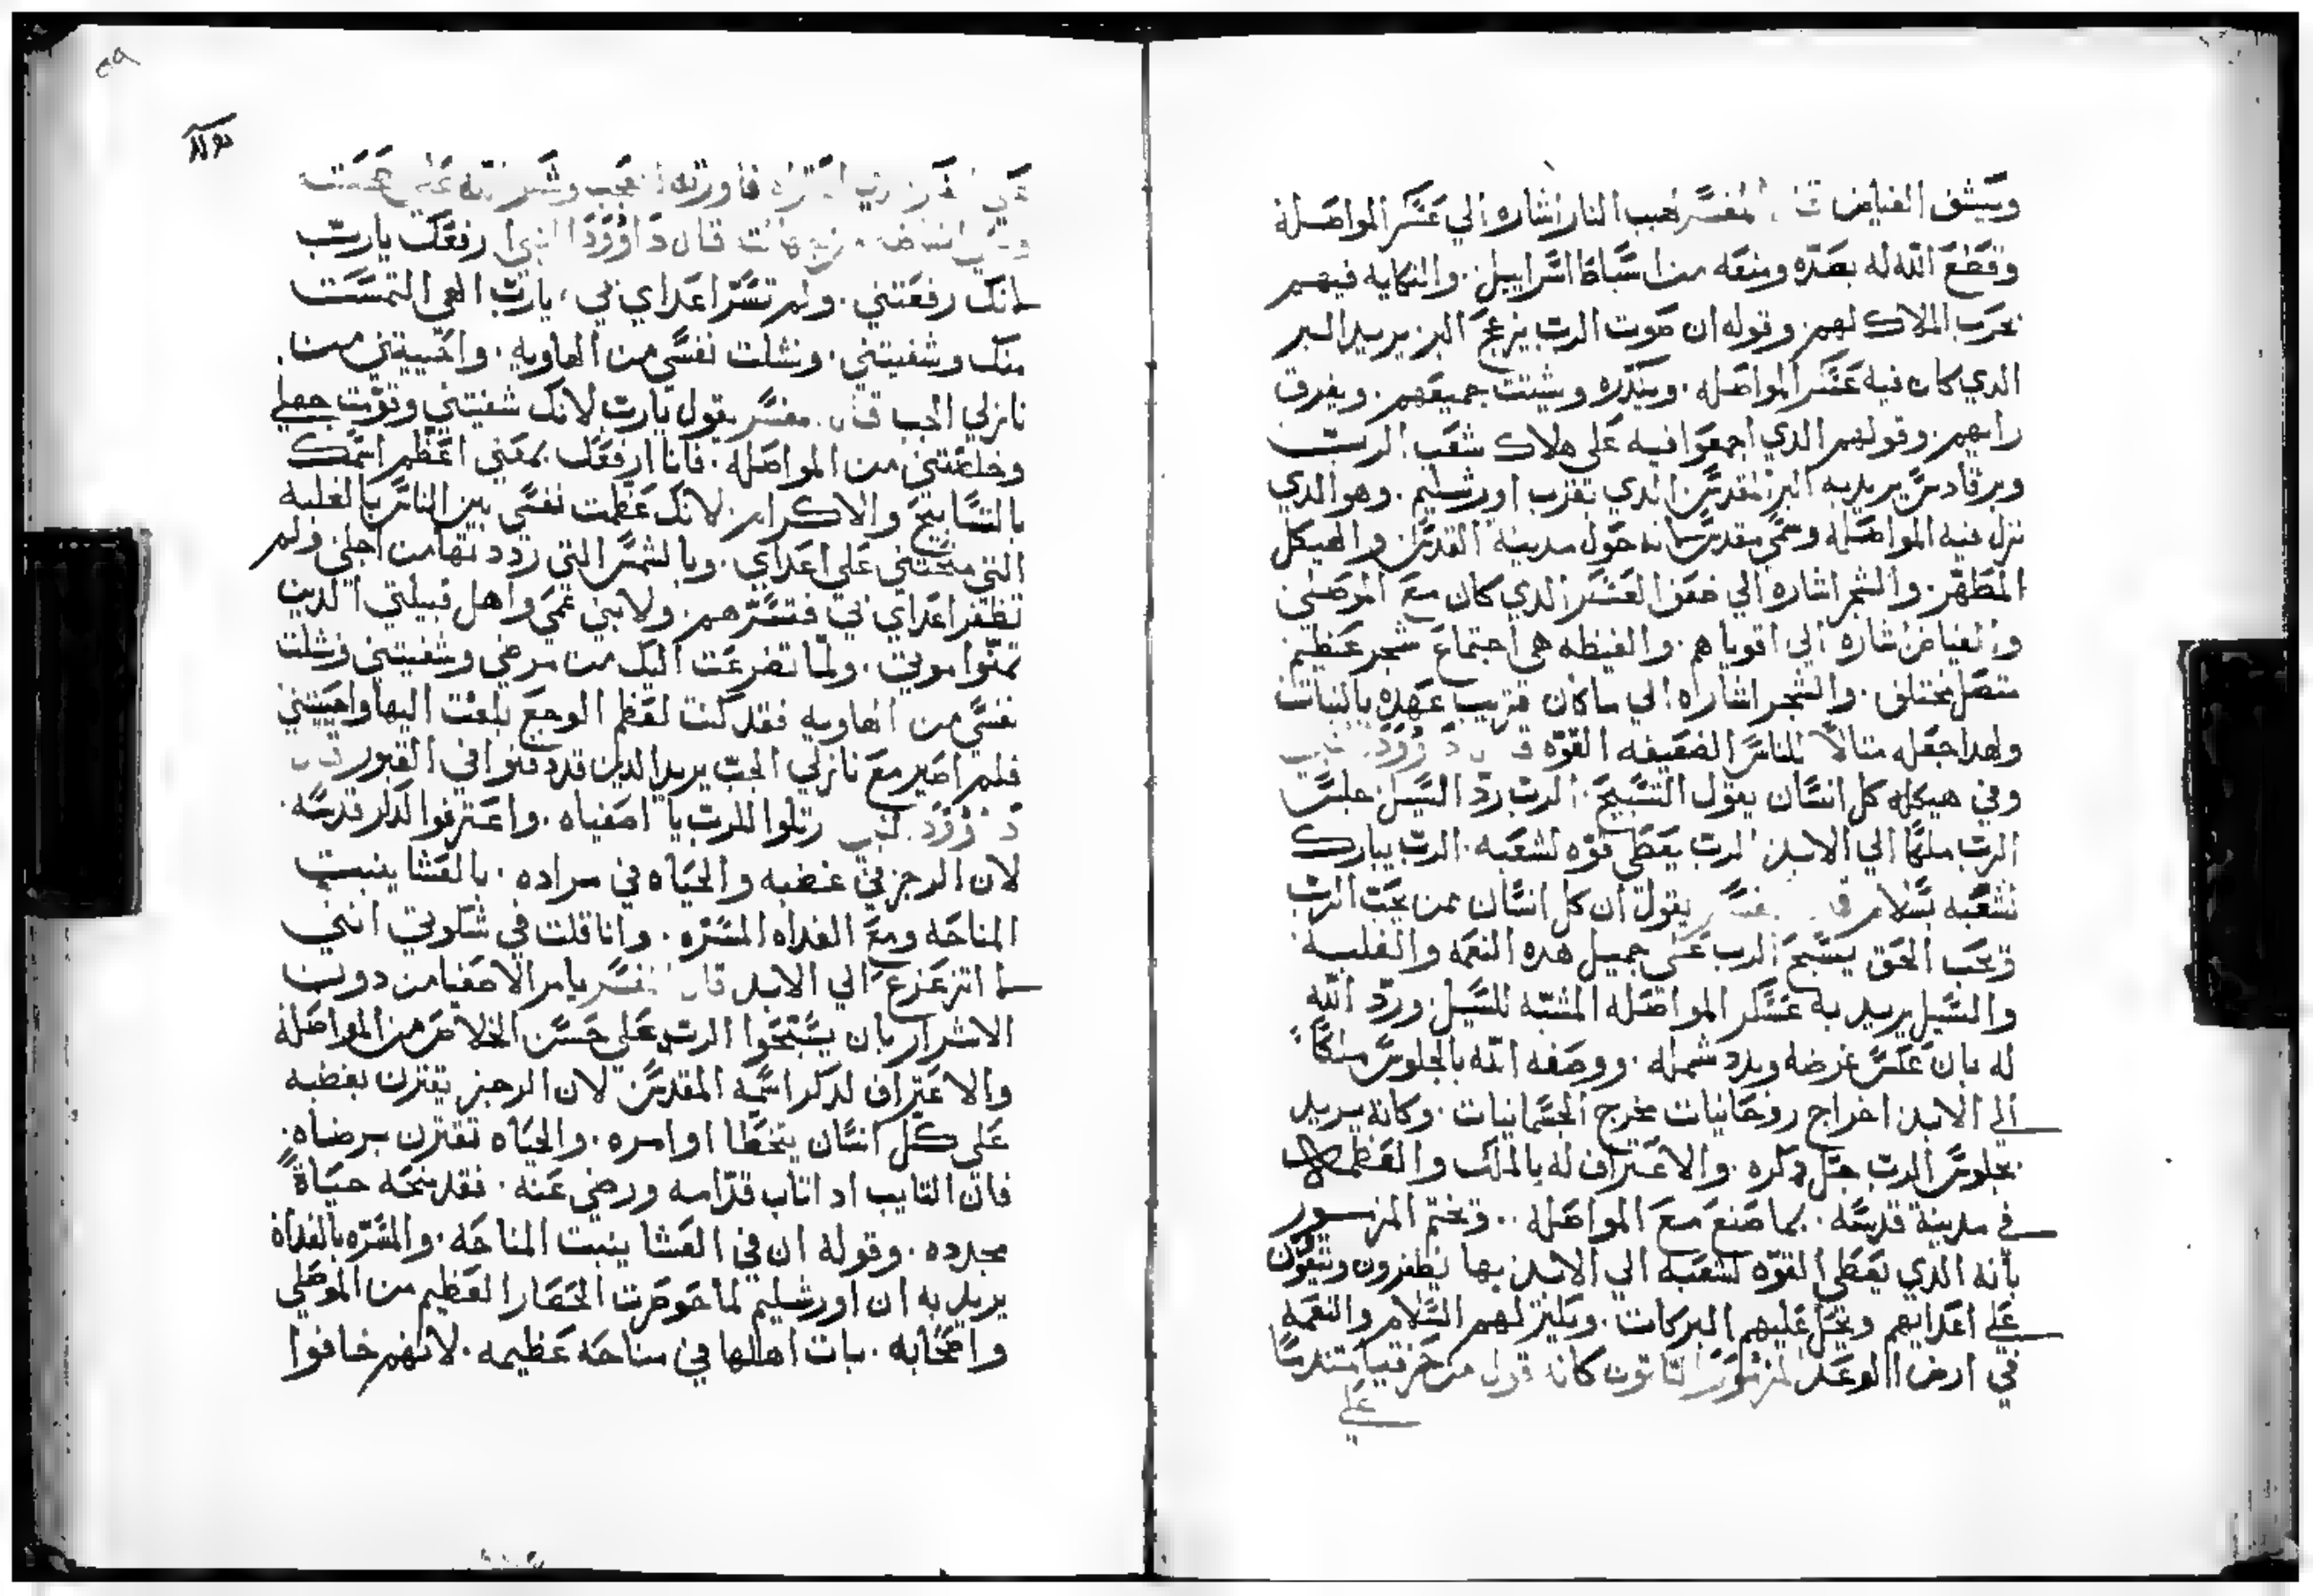 ويشق الغياض المفسر لهيب النار اشاره الي عسكر المواصله
وقطع الله له بصده ومنعه من اسباط اسراييل. والنكايه فيهم
بحرب الملاك لهم. وقوله ان صوت الرب يزعج البر يريد البر
الدي كان فيه عسكر المواصله. ويبدره ويشتت جميعهم. ويفرق
رايهم. وقولهم الدي اجمعوا فيه علي هلاك شعب الرب
وبرقادس يريد به البر المقدس الدي بقرب اورشليم. وهو الدي
نزل فيه المواصله وسمي مقدسا لانه حول مدينة القدس والهيكل
المطهر. والشجر اشاره الي ضعفا العسكر الدي كان مع الموصلي
والغياض اشاره الي اقوياهم. والغيطه هي اجتماع شجر عظيم
متصل مختلق. والشجر اشاراه الي ماكان قريب عهده بالنبات
ولهدا جعله مثالاً للناس الضعيفه القوه قال داوود النبي
وفي هيكله كل انسان يقول التسبيح. الرب رد السيل. جلس
الرب ملكًا الي الابد. الرب يعطي قوه لشعبه. الرب يبارك
شعبه بسلام قال المفسر يقول ان كل انسان ممن يحب الرب
ويحب الحق يسبح الرب علي جميل هده النعمه والغلبه
والسيل يريد به عسكر المواصله المشبه للسيل. ورد الله
له بان عكس غرضه وبدد شمله. ووصفه الله بالجلوس ملكًا
الي الابد. اخراج روحانيات مخرج الجسمانيات. وكانه يريد
بجلوس الرب جل دكره. والاعتراف له بالملك والعظمه
في مدينة قدسه. بما صنع مع المواصله.. ويختم المزمور
بانه الدي يعطي القوه لشعبه الي الابد. بها يظفرون ويقون
علي اعدايهم ويحل عليهم البركات. ويلنزلهم السلام والنعمه
في ارض الوعد المزمور التاسع كانه قول من حزقيا متندمًا
علي
قال داوود النبي ارفعك يارب
لانك رفعتني. ولم تسر اعداي بي. يارب الهي التمست
منك وشفيتني. ونشلت نفسي من الهاويه. واحييتني من
نازلي الجب قال المفسر يقول يارب لانك شفيتني وقويت جهلي
وخلصتني من المواصله. فانا ارفعك بمعني اعظم اسمك
بالتسابيح والاكرام. لانك عظمت نفسي بين الناس بالغلبه
التي منحتني علي اعداي. وبالشمس التي رددتها من اجلي ولم
تظفر اعداي بي فتسرهم. ولابني عمي واهل قبيلتي الدين
تمنوا موتي. ولما تضرعت اليك من مرضي وشفيتني ونشلت
نفسي من الهاويه فقد كنت لعظم الوجع بلغت اليها واحييتني
فلم اصير مع نازلي الجب يريد الدين قد دفنوا في القبور قال
داوود النبي رتلوا للرب يا اصفياه. واعترفوا لدكر قدسه
لان الرجز في غضبه والحياه في مراده. بالعشا ينبت
المناحه ومع الغداه المسره. وانا قلت في شكوتي انني
لا اتزعزع الي الابد قال المفسر يامر الاصفيا من دون
الاشرار بان يسبحوا الرب علي حسن الخلاص من المواصله
والاعتراف لدكر اسمه المقدس لان الرجز يقترن بغضبه
علي كل انسان يتخطا اوامره. والحياه تقترن برضاه.
فان التايب ادا تاب قدامه ورضي عنه. فقد منحه حياةً
مجدده. وقوله ان في العشا ينبت المناحه. والمسره بالغداة
يريد به ان اورشليم لما حوصرت الحصار العظيم من الموصلي
واصحابه. بات اهلها في مناحه عظيمه. لانهم خافوا